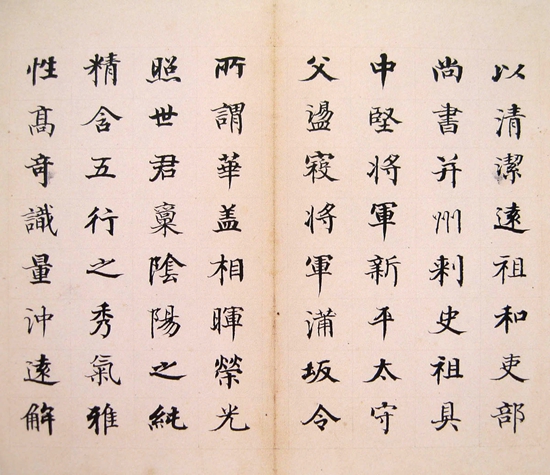 以清潔遠祖和吏部
尚書并州刺史祖具
中堅将軍新平太守
父盪寇将軍蒲坂令
所謂華盖相暉榮光
照世君稟陰陽之純
精含五行之秀氣雅
性髙奇識量沖遠解